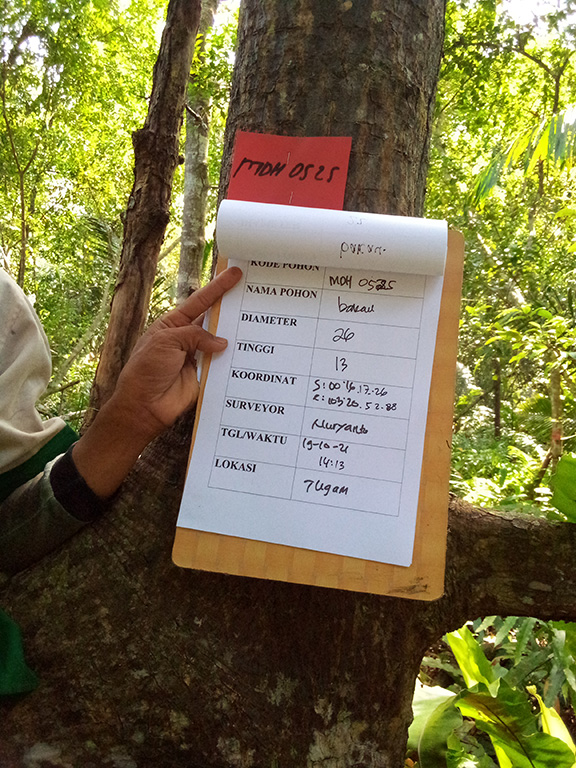 MDH 0525
KODE POHON MDH 0525
NAMA POHON
DIAMETER 26
TINGGI 13
KOORDINAT S: 00.16.17.26
E: 103.20.52.88
SURVEYOR Nuryanto
TGL/WAKTU 19-10-21
14:13
LOKASI Tugam